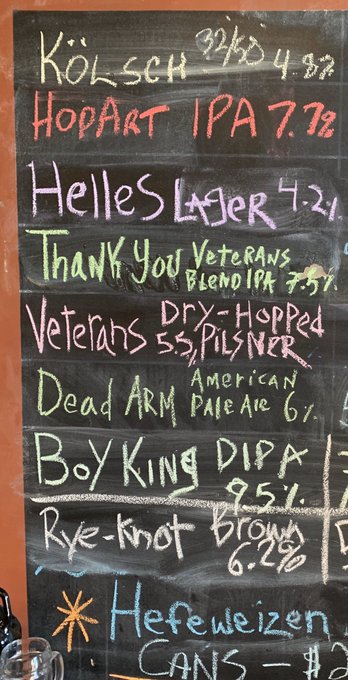 KÖLSCH 32/50 4.8%
HOPART IPA 7.7%
Helles LAGER 4.2%
THANK YOU VETERANS
BLEND IPA 7.5%
Veterans DRY-HOPPED
5.5% PILSNER
Dead ARM AMERICAN
PALE ALE 6%
BOY KING DIPA
9.5%
Rye-Knot Brown
6.2%
Hefeweizen
CANS - $2